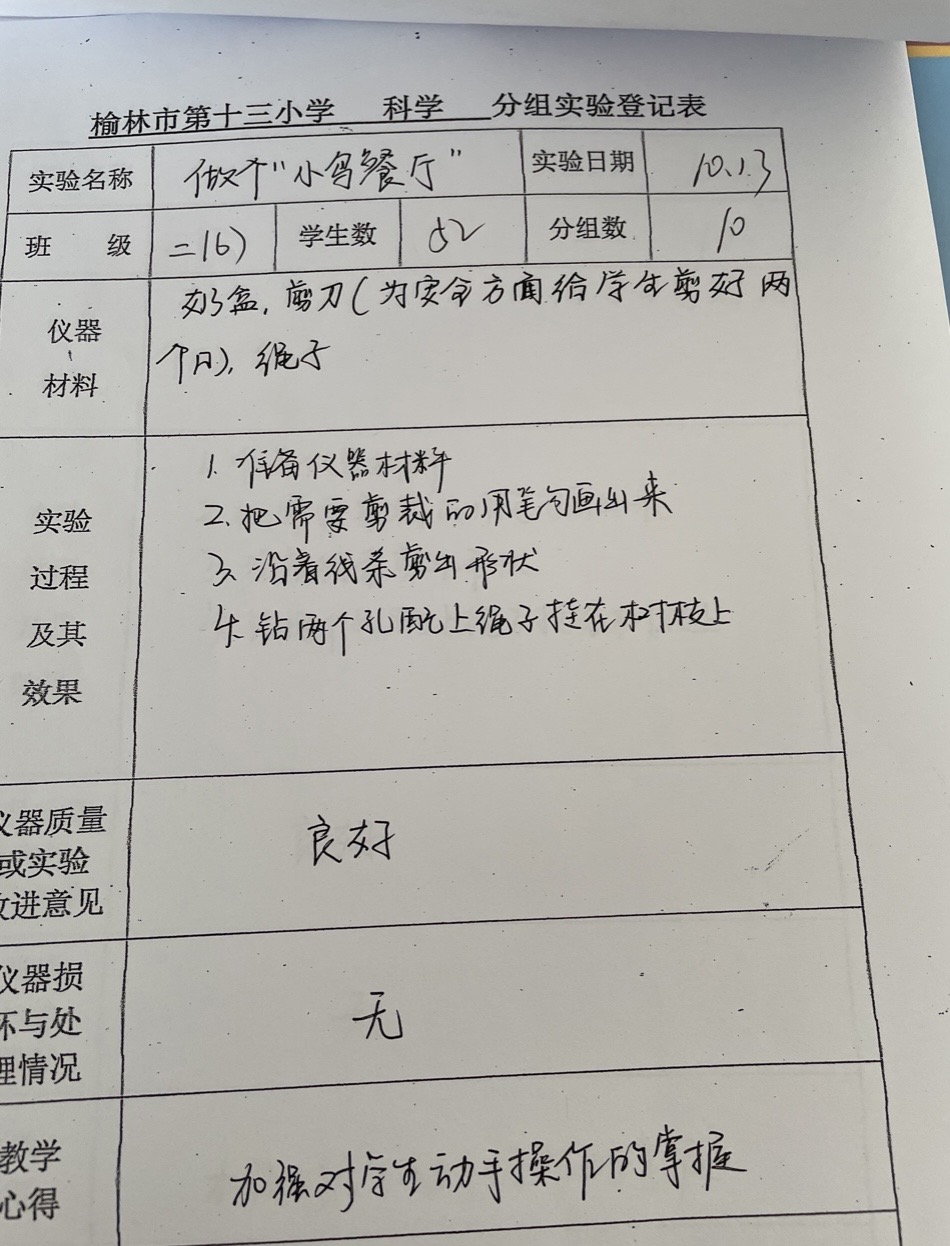 榆林市第十三小学 科学 分组实验登记表
实验名称 做个“小鸟餐厅” 实验日期 10.13
班 级 二(6) 学生数 52 分组数 10
仪器 材料
奶盒, 剪刀(为安全方面给学生剪好两
个口), 绳子
实验 过程 及其 效果
1. 准备仪器材料
2. 把需要剪裁的用笔勾画出来
3. 沿着线条剪出形状
4. 钻两个孔配上绳子挂在树枝上
仪器质量
或实验 良好
改进意见
仪器损
坏与处 无
理情况
教学
心得 加强对学生动手操作的掌握